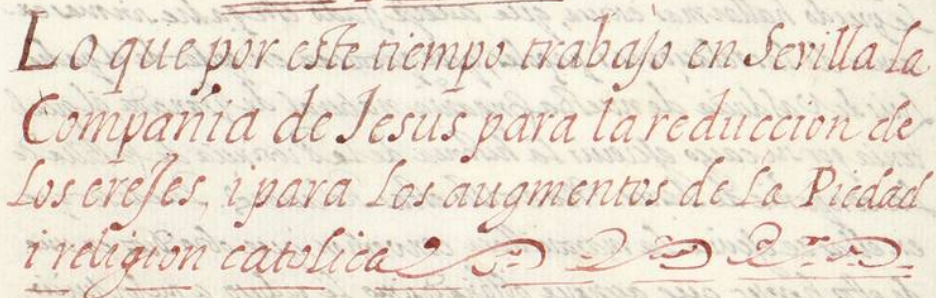 Lo que por este tiempo trabajo en Sevilla la
Compañia de Jesus para la reduccion de
los erejes, i para los augmentos de la Piedad
i religion catolica